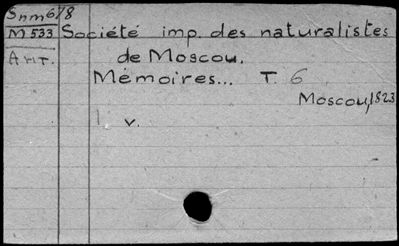 Snm 678
M 533 Société imp. des naturalistes
de Moscou.
Mémoires... T. 6
Moscou, 1823
1 v.